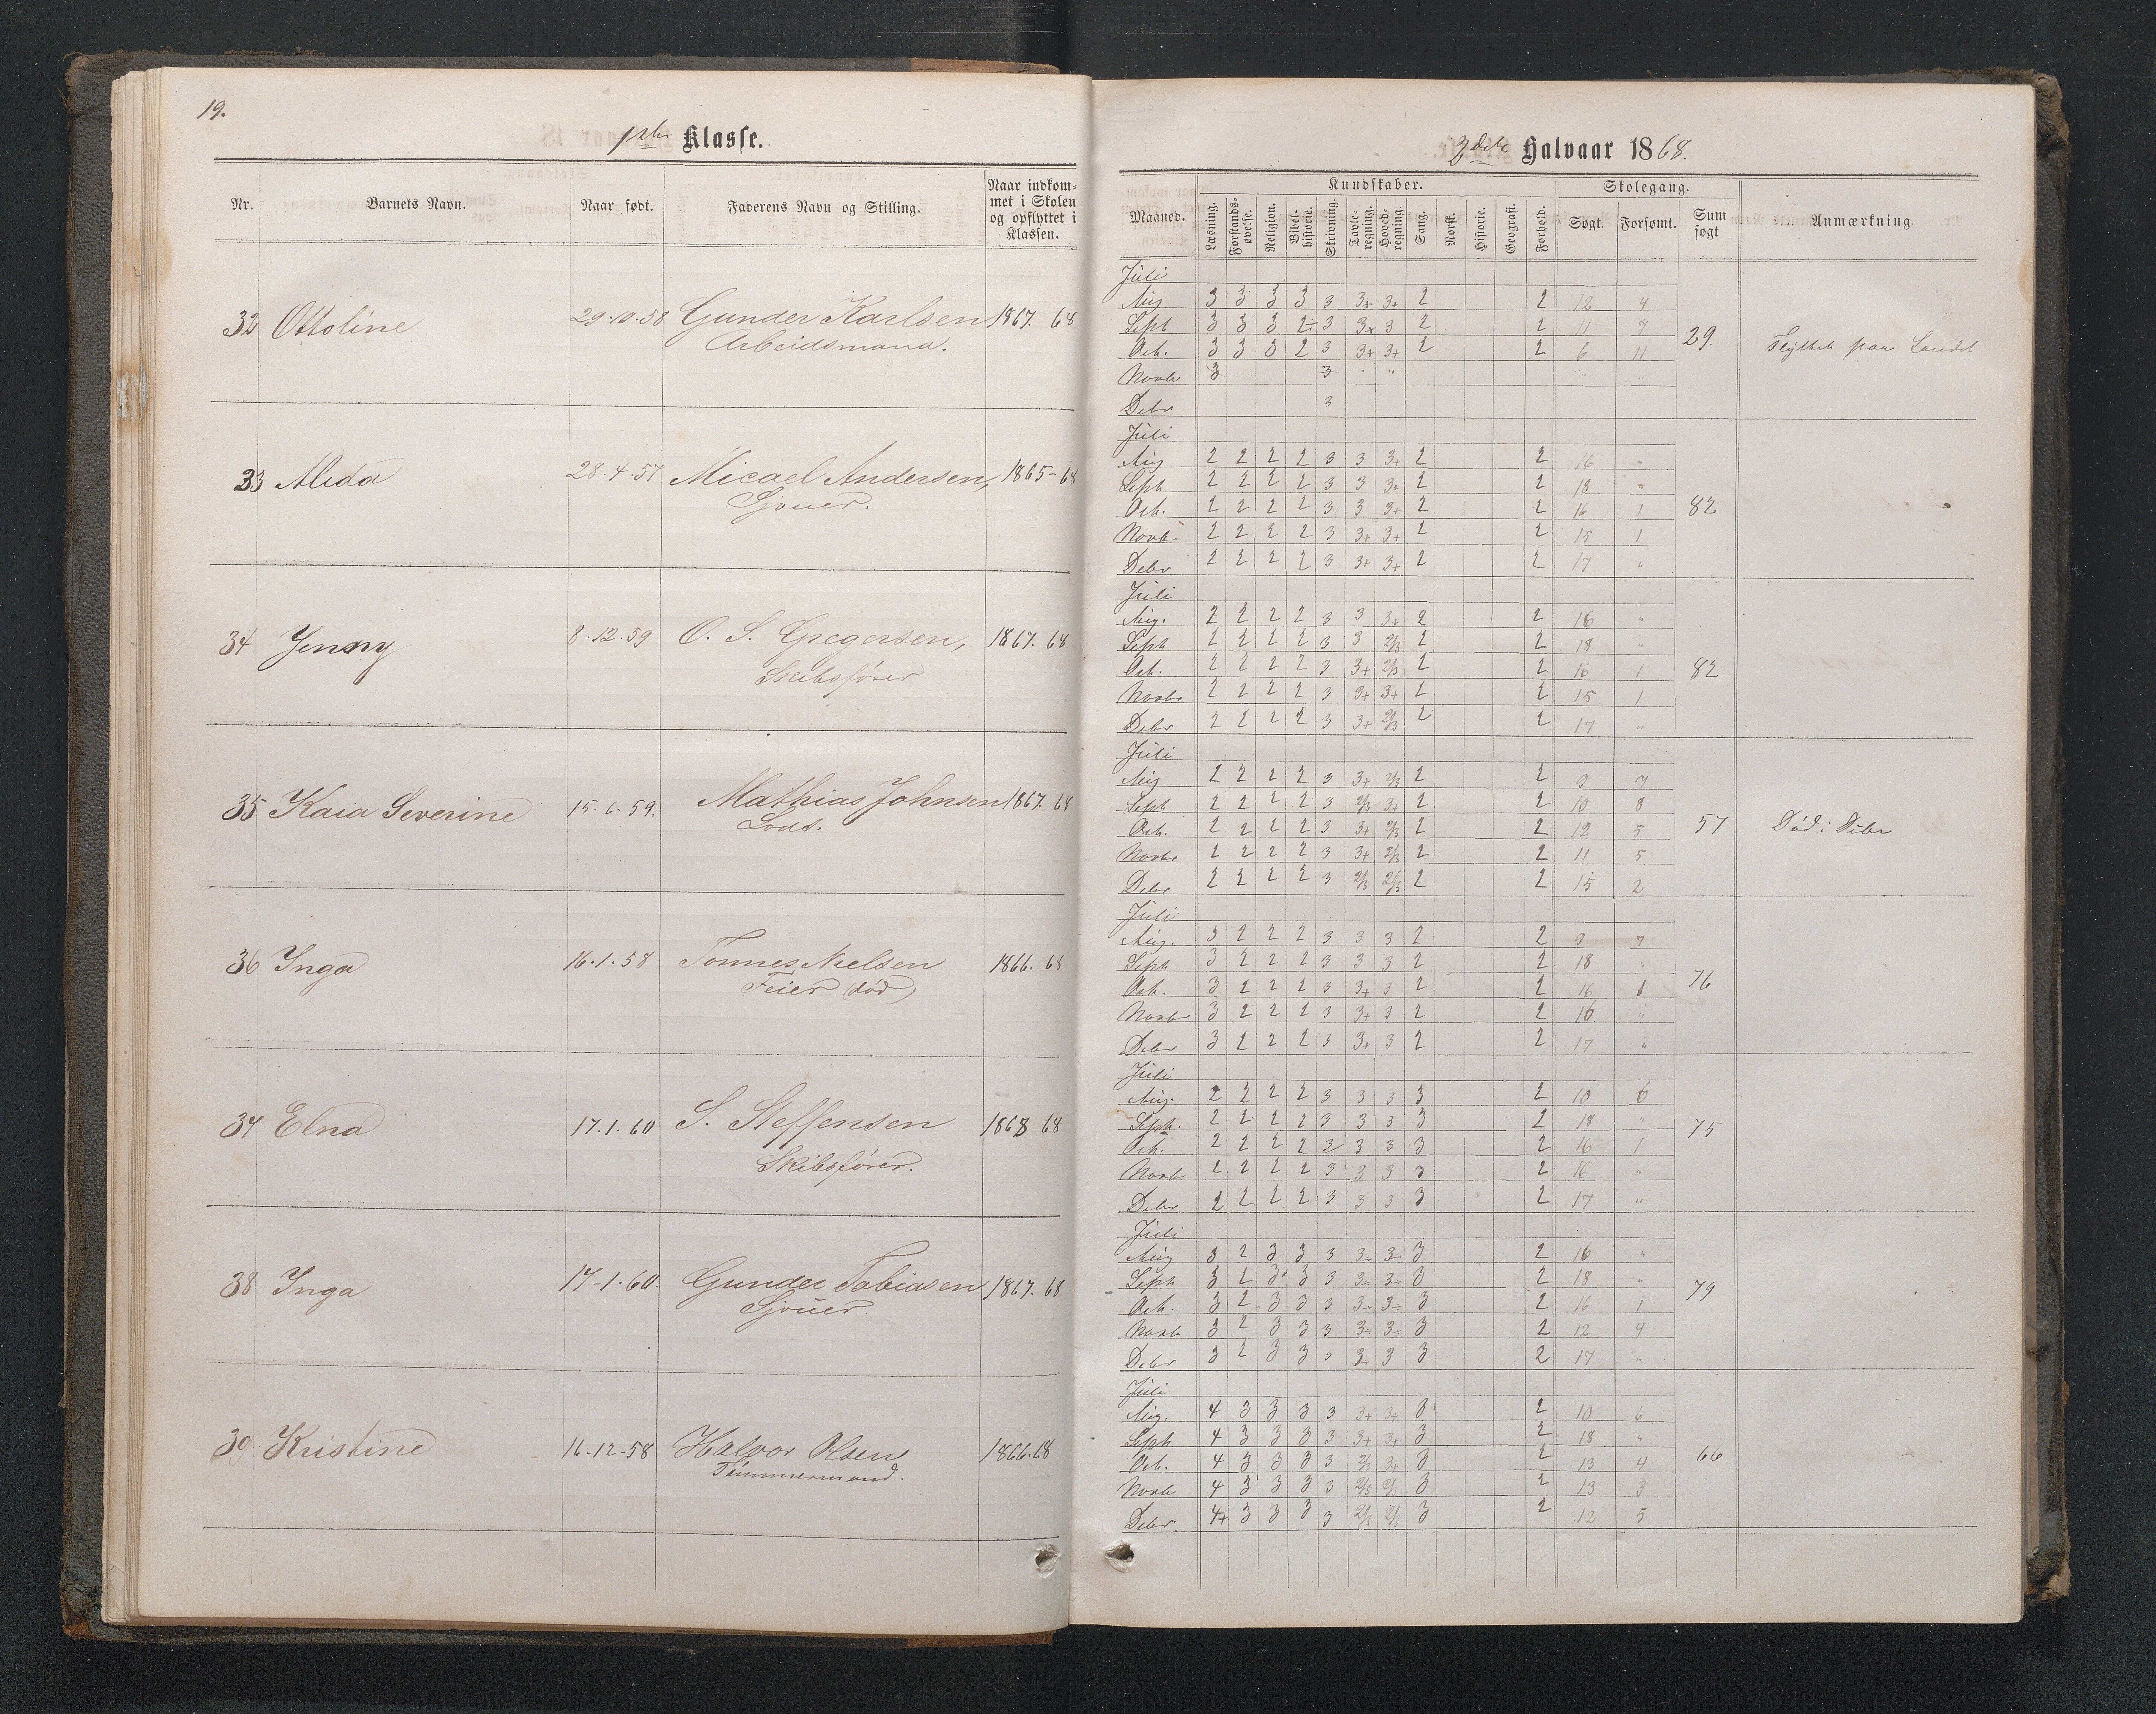 19.
1ste Klasse.
Nr. Barnets Navn. Naar født. Faderens Navn og Stilling. Naar indkom-
met i Skolen
og opflyttet i
Klassen.
32 Ottoline 29.10.58 Gunder Karlsen 1867. 68
Arbeidsmand.
33 Alida 28.4.57 Micael Andersen, 1865-68
Sjouer.
34 Jenny 8.12.59 O. S. Gregersen, 1867. 68
Skibsfører
35 Kaia Severine 15.6.59. Mathias Johnsen 1867. 68
Lods.
36 Inga 16.1.58 Tønnes Nielsen 1866. 68
Feier (død)
37 Elna 17.1.60 S. Steffensen 1868 68
Skibsfører.
38 Inga 17-1.60. Gunder Tobiasen 1867. 68
Sjouer.
39 Kristine 16-12-58 Halvor Olsen 1866.68
Tømmermand.
Halvaar 1868.
Maaned. Kundskaber. Skolegang. Sum søgt Anmærkning.
Læsning. Forstands-øvelse. Religion. Bibel-historie. Skrivning. Tavle-regning. Hoved-regning. Sang. Norsk. Historie. Geografi. Forhold. Søgt. Forsømt.
Juli
Aug 3 3 3 3 3 3+ 3+ 2 2 12 4
Sept 3 3 3 2÷ 3 3+ 3 2 2 11 7
Oct. 3 3 3 2 3 3+ 3+ 2 2 6 11
29. Flyttet paa Landet
Novb 3 3 " " " "
Debr 3
Juli
Aug 2 2 2 2 3 3 3+ 2 2 16 "
Sept 2 2 2 2 3 3 3+ 2 2 18 "
Oct. 2 2 2 2 3 3 3+ 2 2 16 1
82
Novb. 2 2 2 2 3 3+ 3+ 2 2 15 1
Debr 2 2 2 2 3 3+ 3+ 2 2 17 "
Juli
Aug. 2 2 2 2 3 3 3+ 2 2 16 "
Sept 2 2 2 2 3 3 2/3 2 2 18 "
Oct. 2 2 2 2 3 3+ 2/3 2 2 16 1
82
Novbr 2 2 2 2 3 3+ 3+ 2 2 15 1
Debr 2 2 2 2 3 3+ 2/3 2 2 17 "
Juli
Aug 2 2 2 2 3 3+ 2/3 2 2 9 7
Sept 2 2 2 2 3 2/3 3+ 2 2 10 8
Oct. 2 2 2 2 3 3+ 2/3 2 2 12 5
57 Død i Debr
Novbr 2 2 2 2 3 3+ 2/3 2 2 11 5
Debr 2 2 2 2 3 2/3 2/3 2 2 15 2
Juli
Aug. 3 2 2 2 3 3 3 2 2 9 7
Sept 3 2 2 2 3 3 3 2 2 18 "
Oct. 3 2 2 2 3 3+ 3 2 2 16 1
76
Novbr 3 2 2 2 3 3+ 3 2 2 16 "
Debr 3 2 2 2 3 3+ 3 2 2 17 "
Juli
Aug. 2 2 2 2 3 3 3 3 2 10 6
Sept. 2 2 2 2 3 3 3 3 2 18 "
75
Oct. 2 2 2 2 3 3 3 3 2 16 1
Novb 2 2 2 2 3 3 3 3 2 16 "
Debr 2 2 2 2 3 3 3 3 2 17 "
Juli
Aug 3 2 3 3 3 3- 3- 3 2 16 "
Sept 3 2 3 3 3 3- 3- 3 2 18 "
79
Oct. 3 2 3 3 3 3- 3- 3 2 16 1
Novb 3 2 3 3 3 3- 3- 3 2 12 4
Debr 3 2 3 3 3 3 3 3 2 17 "
Juli
Aug. 4 3 3 3 3 3+ 3+ 3 2 10 6
Sept 4 3 3 3 3 3+ 3+ 3 2 18 "
66
Oct. 4 3 3 3 3 2/3 3+ 3 2 13 4
Novb 4 3 3 3 3 2/3 2/3 3 2 13 3
Debr. 4+ 3 3 3 3 2/3 2/3 3 2 12 5